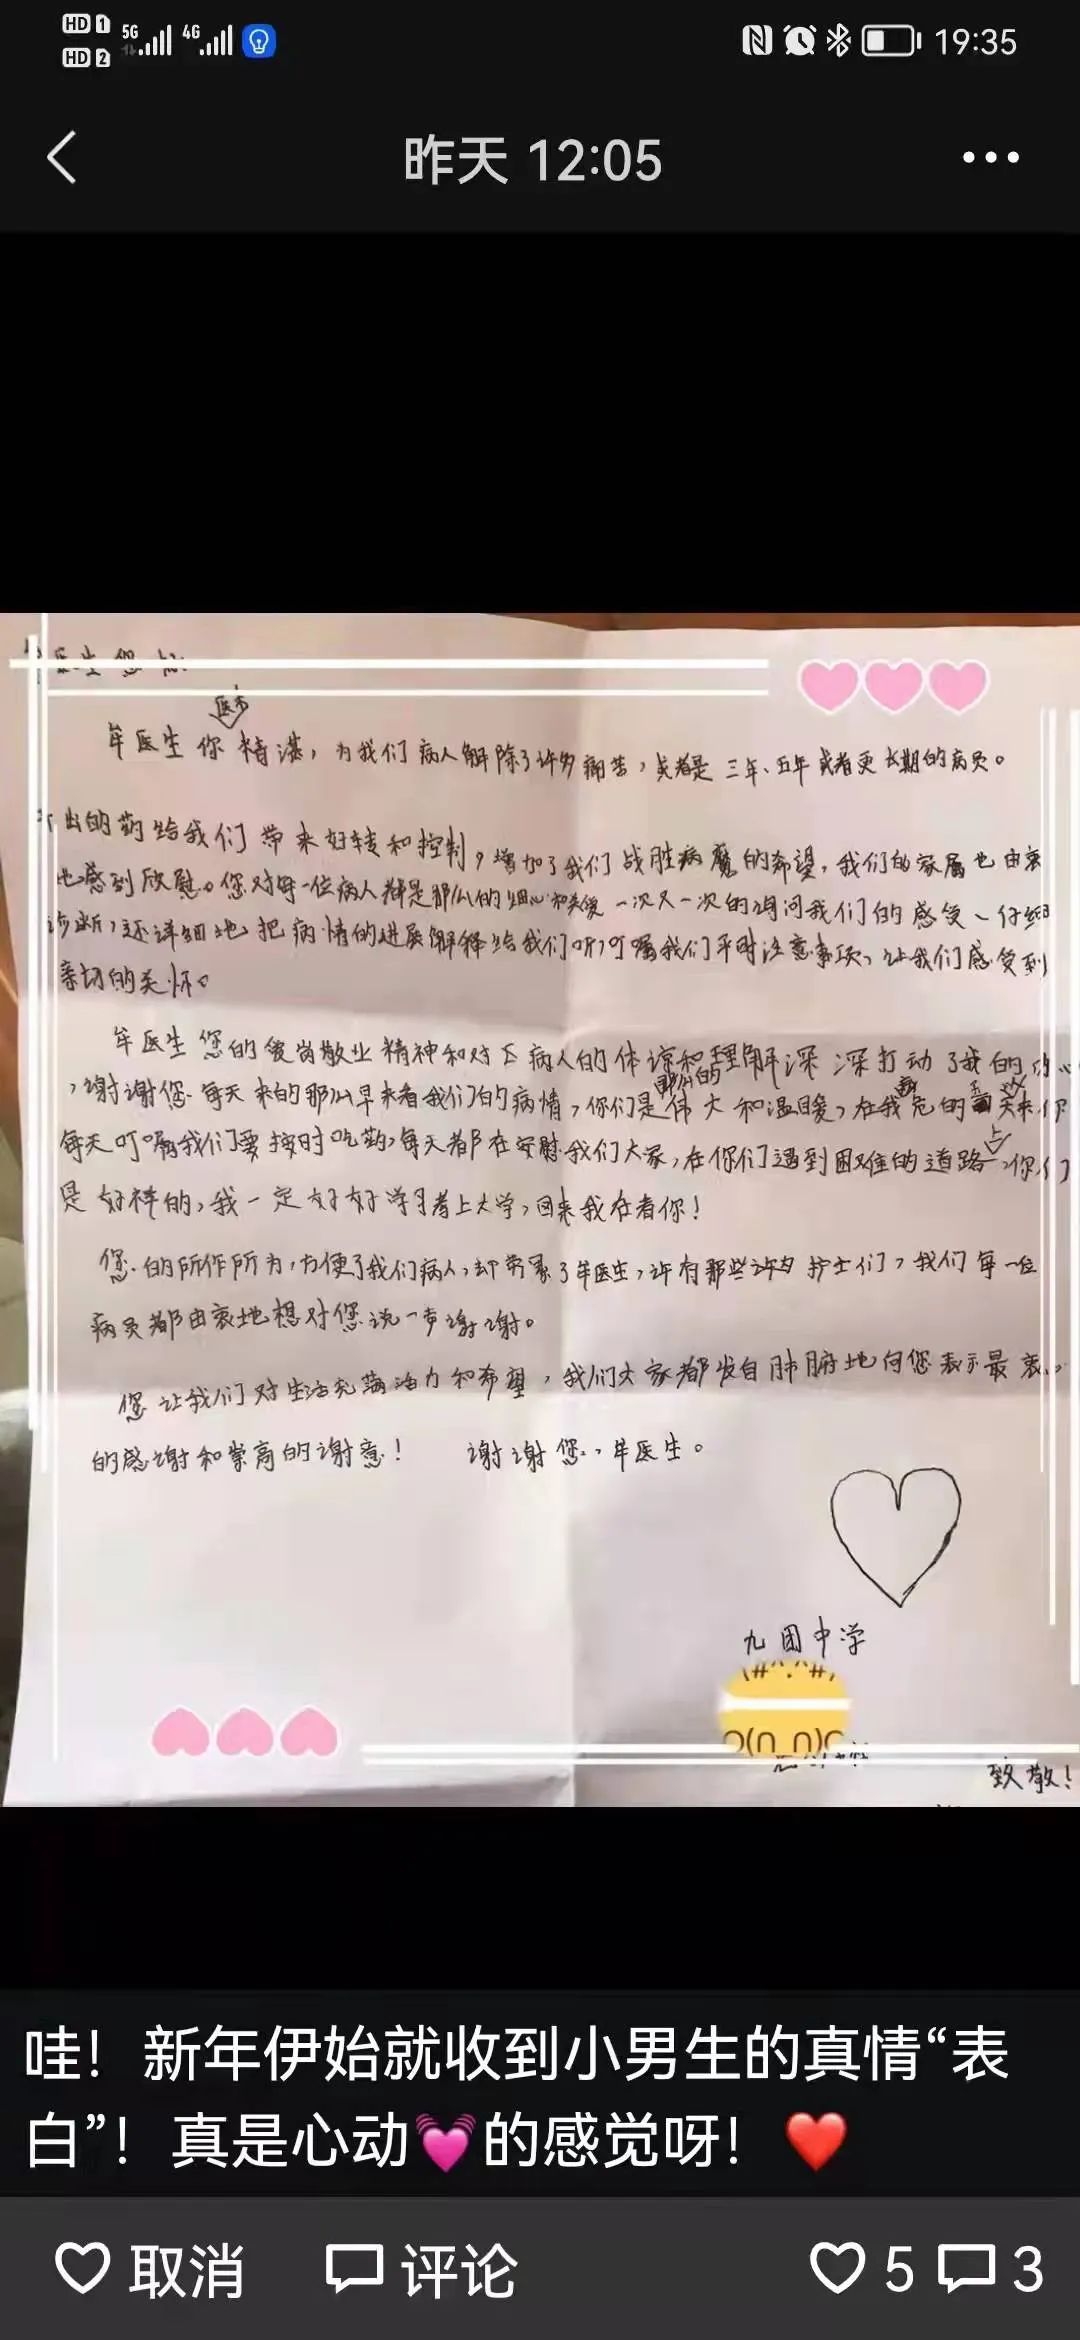 HD 1 5G 4G
HD 2
19:35
昨天 12:05
医生您
医术
牟医生你精湛，为我们病人解除了许多痛苦，或者是三年、五年或者更长期的病员。
出的药给我们带来好转和控制，增加了我们战胜病魔的希望，我们的家属也由衷
地感到欣慰。您对每一位病人都是那么的细心和关爱一次又一次的询问我们的感受、仔细
诊断，还详细地把病情的进展解释给我们听，叮嘱我们平时注意事项，让我们感受到
亲切的关怀。
牟医生您的爱岗敬业精神和对病人的体谅和理解深深打动了我的
那么的
，谢谢您每天来的那么早来看我们的病情，你们是伟大和温暖，在我
每天叮嘱我们要按时吃药，每天都在安慰我们大家，在你们遇到困难的道路上，你们
是好样的，我一定好好学习考上大学，回来我在看你！
您的所作所为，方便了我们病人，却劳累了牟医生，许有那些许护士们，我们每一位
病员都由衷地想对您说一声谢谢。
您让我们对生活充满活力和希望，我们大家都发自肺腑地向您表示最衷
的感谢和崇高的谢意！ 谢谢您，牟医生。
九团中学
(∩_∩)
致敬！
哇！新年伊始就收到小男生的真情“表
白”！真是心动💓的感觉呀！❤️
取消 评论 5 3